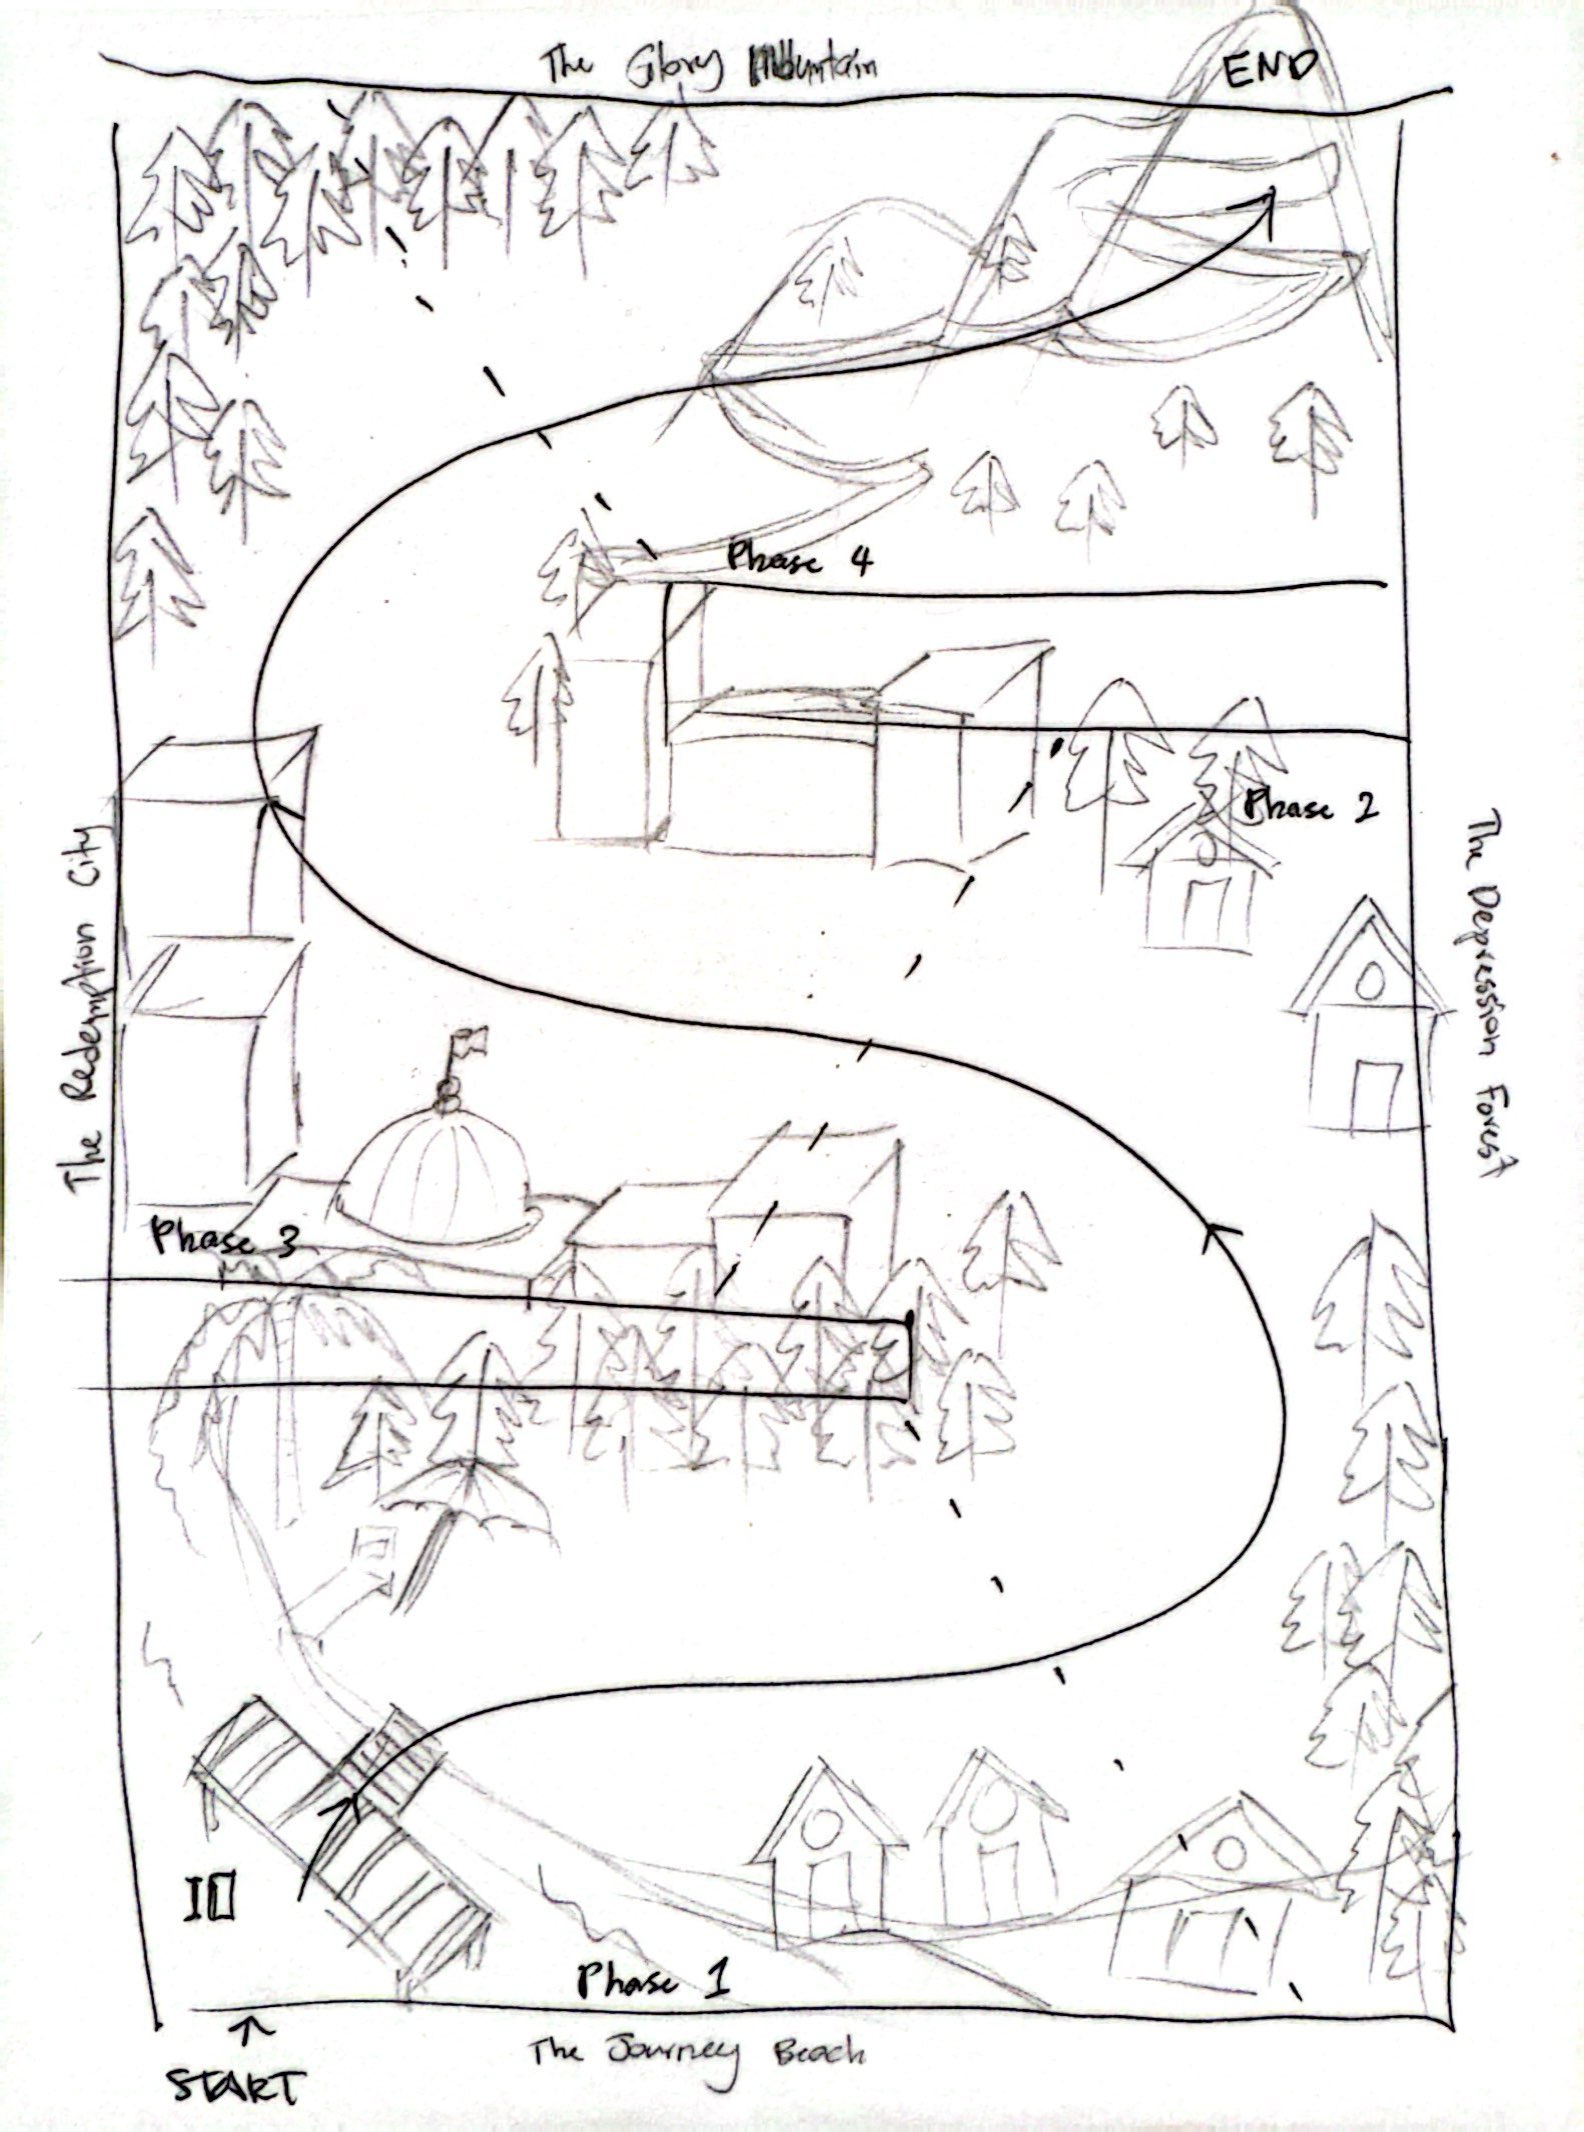 The Glory Mountain
END
Phase 4
Phase 2
The Redemption City
The Depression Forest
Phase 3
Phase 1
The Journey Beach
START